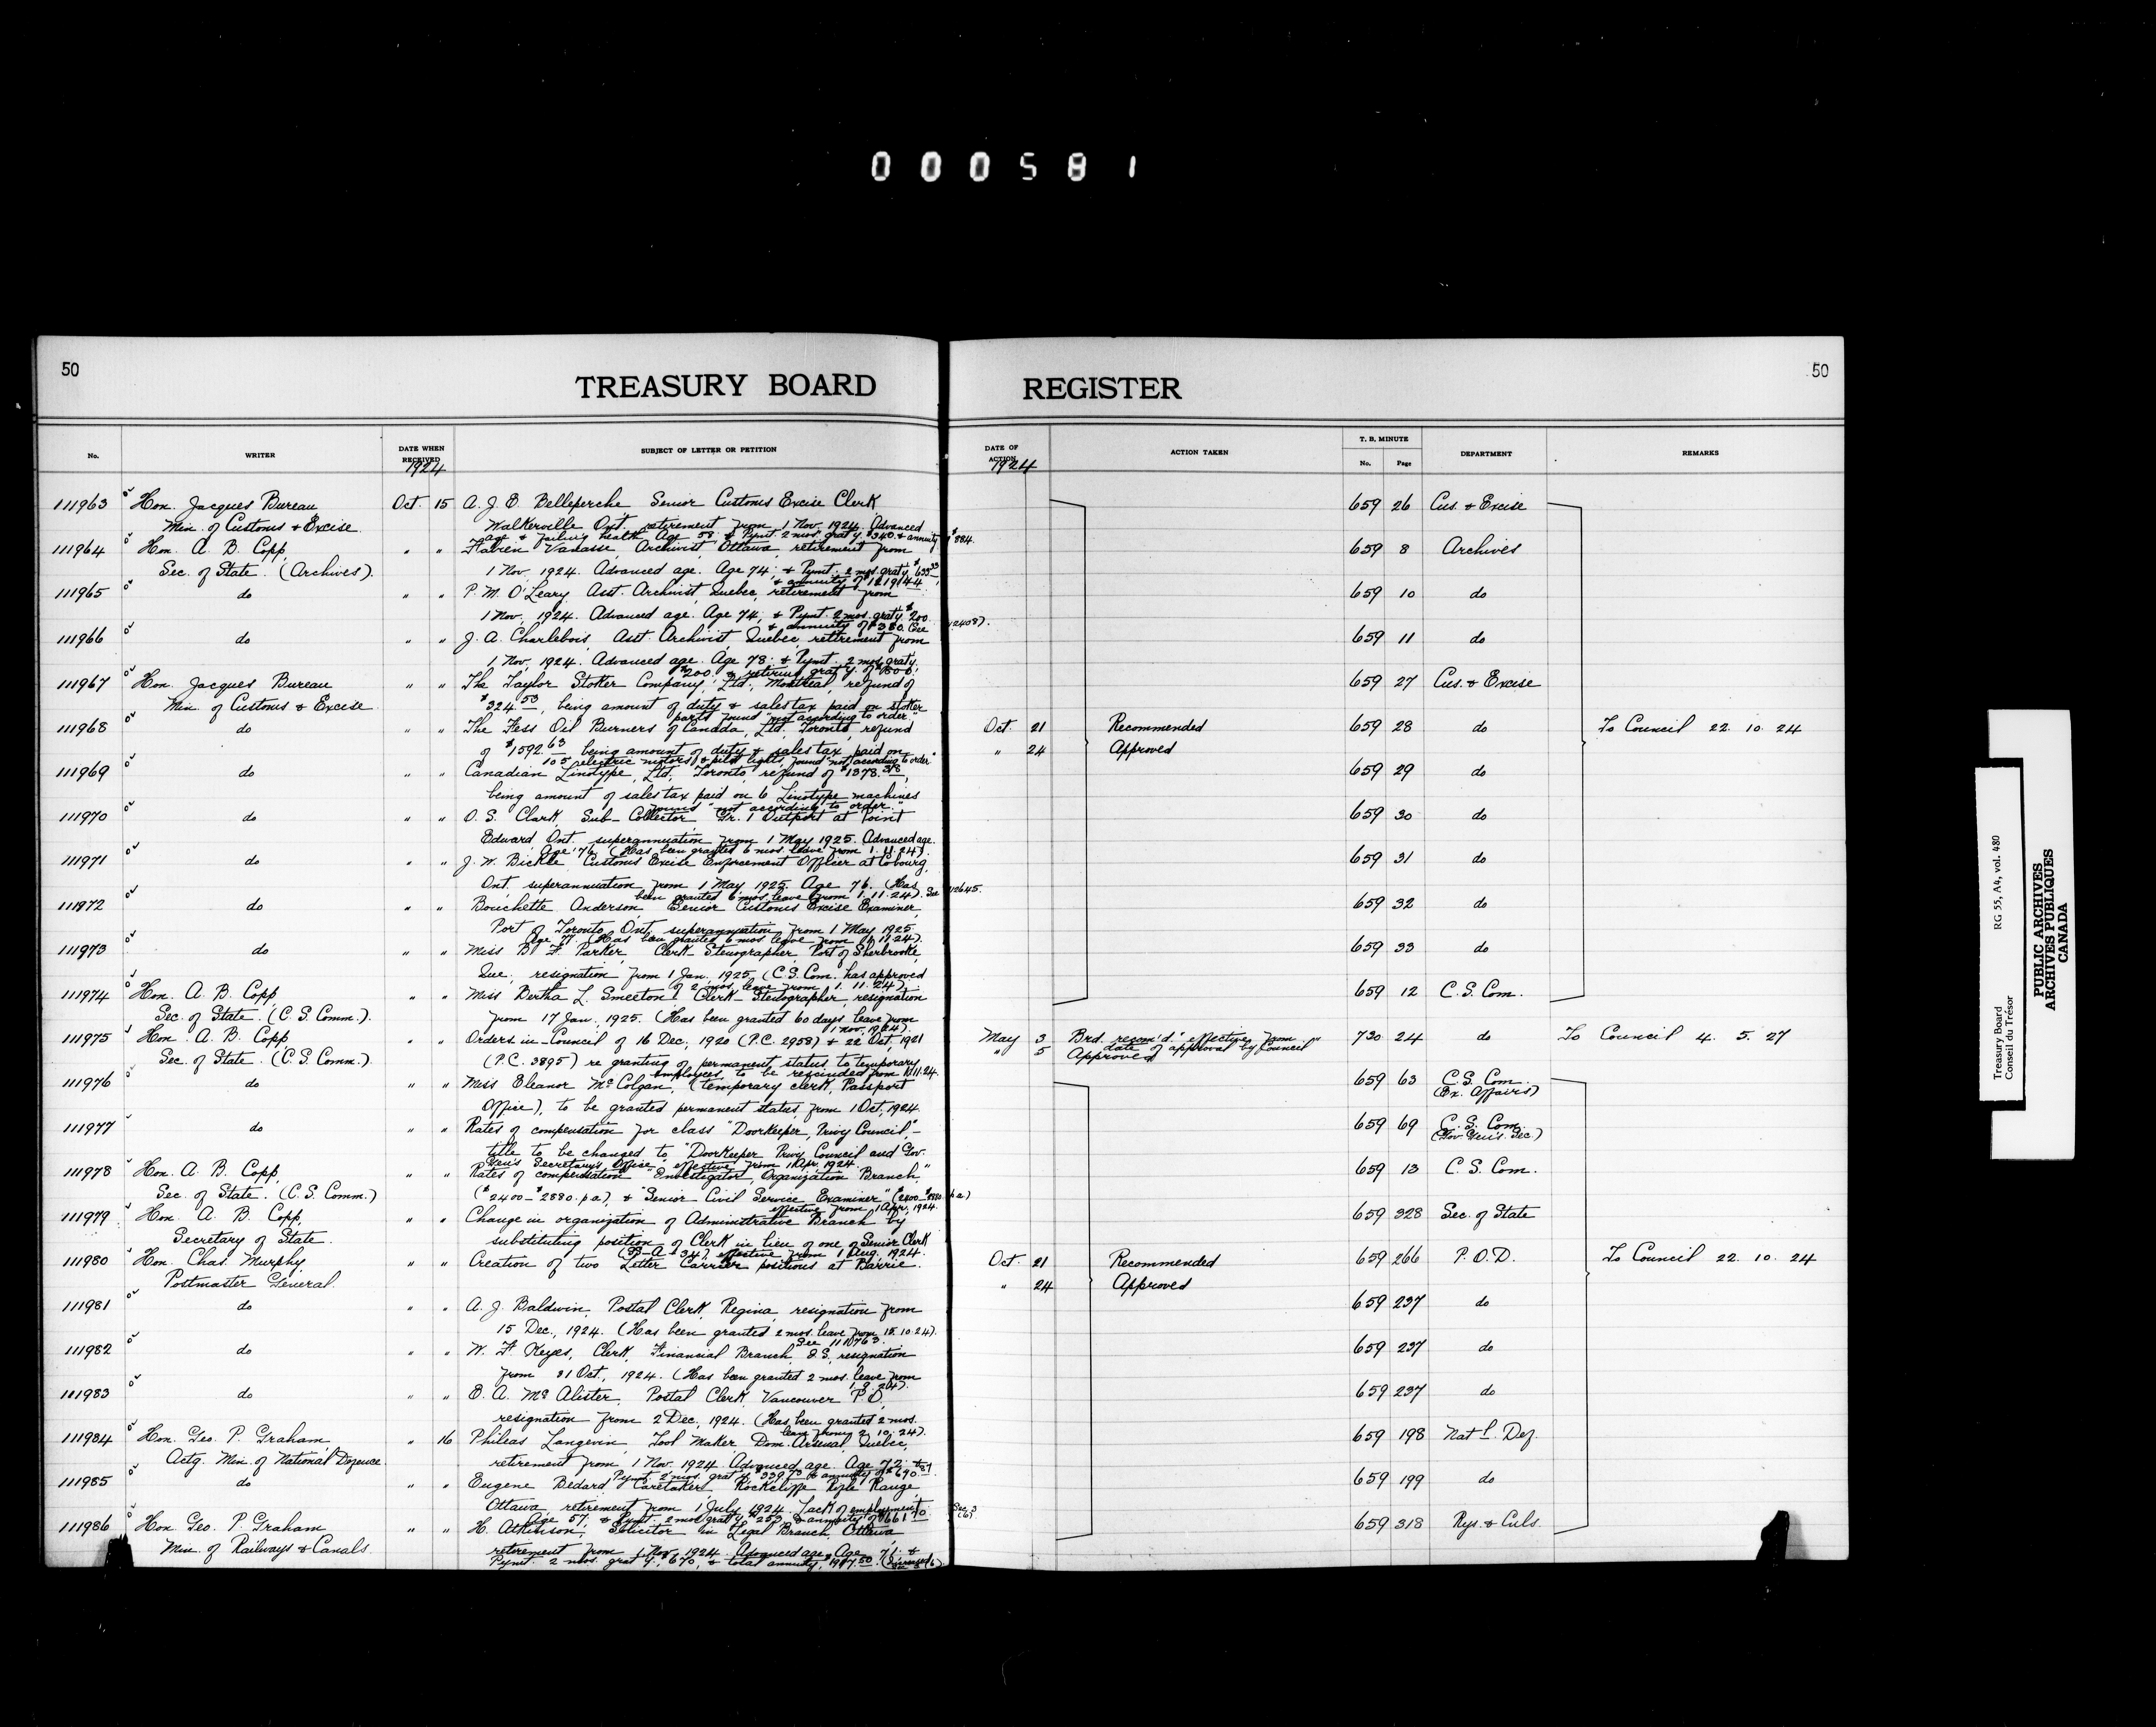 000581
50
TREASURY BOARD REGISTER
50
No. WRITER DATE WHEN RECEIVED SUBJECT OF LETTER OR PETITION DATE OF ACTION ACTION TAKEN T. B. MINUTE No. Page DEPARTMENT REMARKS
1924 1924
111963 Hon. Jacques Bureau Oct. 15 A. J. E. Belleperche, Senior Customs Excise Clerk, 659 26 Cus. & Excise
Min. of Customs & Excise Walkerville Ont. retirement from 1 Nov. 1924. Advanced
age & failing health. Age 58; & Pymt. 2 mos. grat'y. $340. & annuity $884.
111964 Hon. A. B. Copp, " " Flavien Vanasse, Archivist, Ottawa, retirement from 659 8 Archives
Sec. of State. (Archives). 1 Nov. 1924. Advanced age. Age 74; & Pymt. 2 mos. grat'y. $633.33
& annuity of
111965 do " " P. M. O'Leary, Asst. Archivist, Quebec, retirement from 659 10 do
1 Nov. 1924. Advanced age. Age 74; & Pymt. 2 mos. grat'y. $200.
& annuity of $380. (See 12408).
111966 do " " J. A. Charlebois, Asst. Archivist, Quebec, retirement from 659 11 do
1 Nov. 1924. Advanced age. Age 78; & Pymt. 2 mos. grat'y.
$200. & retiring grat'y. of
111967 Hon. Jacques Bureau " " The Taylor Stoker Company, Ltd., Montreal, refund of 659 27 Cus. & Excise
Min. of Customs & Excise $324.53, being amount of duty & sales tax paid on stoker
parts found "not according to order."
111968 do " " The Fess Oil Burners of Canada, Ltd., Toronto, refund Oct. 21 Recommended 659 28 do To Council 22. 10. 24
of $1592.63 being amount of duty & sales tax paid on " 24 Approved
105 electric motors & pilot lights, found "not according to order"
111969 do " " Canadian Linotype, Ltd., Toronto, refund of $1378.38, 659 29 do
being amount of sales tax paid on 6 Linotype machines
found "not according to order."
111970 do " " O. S. Clark, Sub-Collector Gr. 1 Outport at Point 659 30 do
Edward, Ont. superannuation from 1 May 1925. Advanced age.
Age 76. (Has been granted 6 mos. leave from 1. 11. 24).
111971 do " " J. W. Bickle Customs Excise Enforcement Officer at Cobourg, 659 31 do
Ont. superannuation from 1 May, 1925. Age 76. (Has
been granted 6 mos. leave from 1. 11. 24). See 112645.
111972 do " " Bouchette Anderson, Senior Customs Excise Examiner, 659 32 do
Port of Toronto, Ont. superannuation from 1 May 1925
Age 77. (Has been granted 6 mos leave from 1. 11. 24).
111973 do " " Miss B. F. Parker, Clerk-Stenographer, Port of Sherbrooke, 659 33 do
Que. resignation from 1 Jan. 1925. (C.S. Com. has approved
of 2 mos. leave from 1. 11. 24).
111974 Hon. A. B. Copp, " " Miss Bertha L. Smeeton, Clerk-Stenographer, resignation 659 12 C. S. Com.
Sec. of State. (C. S. Comm.). from 17 Jan. 1925. (Has been granted 60 days leave from
1 Nov. 1924).
111975 Hon. A. B. Copp, " " Orders-in-Council of 16 Dec., 1920 (P.C. 2958) & 22 Oct, 1921 May 3 Brd. recom'd. "effective from 730 24 do To Council 4. 5. 27
date of approval by Council"
Sec. of State. (C. S. Comm.). (P.C. 3895) re granting of permanent status to temporary " 5 Approved
employees, to be rescinded from 1.11.24.
111976 do " " Miss Eleanor McColgan, (temporary clerk, Passport 659 63 C. S. Com.
(Ex. Affairs)
Office), to be granted permanent status, from 1 Oct, 1924.
111977 do " " Rates of compensation for class "Doorkeeper, Privy Council,"- 659 69 C. S. Com.
(Gov. Gen's. Sec.)
title to be changed to "Doorkeeper Privy Council and Gov.
Gen's Secretary's Office" effective from 1 Apr. 1924.
111978 Hon. A. B. Copp, " " Rates of compensation "Investigator, Organization Branch," 659 13 C. S. Com.
Sec. of State. (C. S. Comm.) ($2400-$2880. p.a.), & "Senior Civil Service Examiner" (2400-$2880. p.a.)
effective from 1 Apr., 1924.
111979 Hon. A. B. Copp, " " Change in organization of Administrative Branch by 659 328 Sec. of State
Secretary of State. substituting position of Clerk in lieu of one of Senior Clerk
effective from 1 Aug. 1924.
111980 Hon. Chas. Murphy, " " Creation of two Letter Carrier positions at Barrie. Oct. 21 Recommended 659 266 P. O. D. To Council 22. 10. 24
Postmaster General. " 24 Approved
111981 do " " A. J. Baldwin, Postal Clerk, Regina, resignation from 659 237 do
15 Dec., 1924. (Has been granted 2 mos. leave from 15. 10. 24).
See 111763.
111982 do " " W. F. Keyes, Clerk, Financial Branch, I.S., resignation 659 237 do
from 31 Oct., 1924. (Has been granted 2 mos. leave from
1. 9. 24).
111983 do " " E. A. McAlister, Postal Clerk, Vancouver P.O., 659 237 do
resignation from 2 Dec., 1924. (Has been granted 2 mos.
leave from 2. 10. 24).
111984 Hon. Geo. P. Graham, " 16 Phileas Langevin, Tool Maker, Dom. Arsenal, Quebec, 659 198 Nat'l. Def.
Actg. Min. of National Defence. retirement from 1 Nov. 1924. Advanced age. Age 72; &
Pymt. 2 mos. grat'y. & annuity of
111985 do " " Eugene Bedard, Caretaker, Rockcliffe Rifle Range, 659 199 do
Ottawa, retirement from 1 July 1924. Lack of employment.
Age 57; & Pymt. 2 mos. grat'y. $250 & annuity of
111986 Hon. Geo. P. Graham, " " H. Atkinson, Solicitor in Legal Branch, Ottawa 659 318 Rys. & Culs.
Min. of Railways & Canals. retirement from 1 Nov. 1924. Advanced age. Age 71; &
Pymt. 2 mos. grat'y. $670, & total annuity,
Treasury Board RG 55, A4, vol. 480
Conseil du Trésor
PUBLIC ARCHIVES
ARCHIVES PUBLIQUES
CANADA